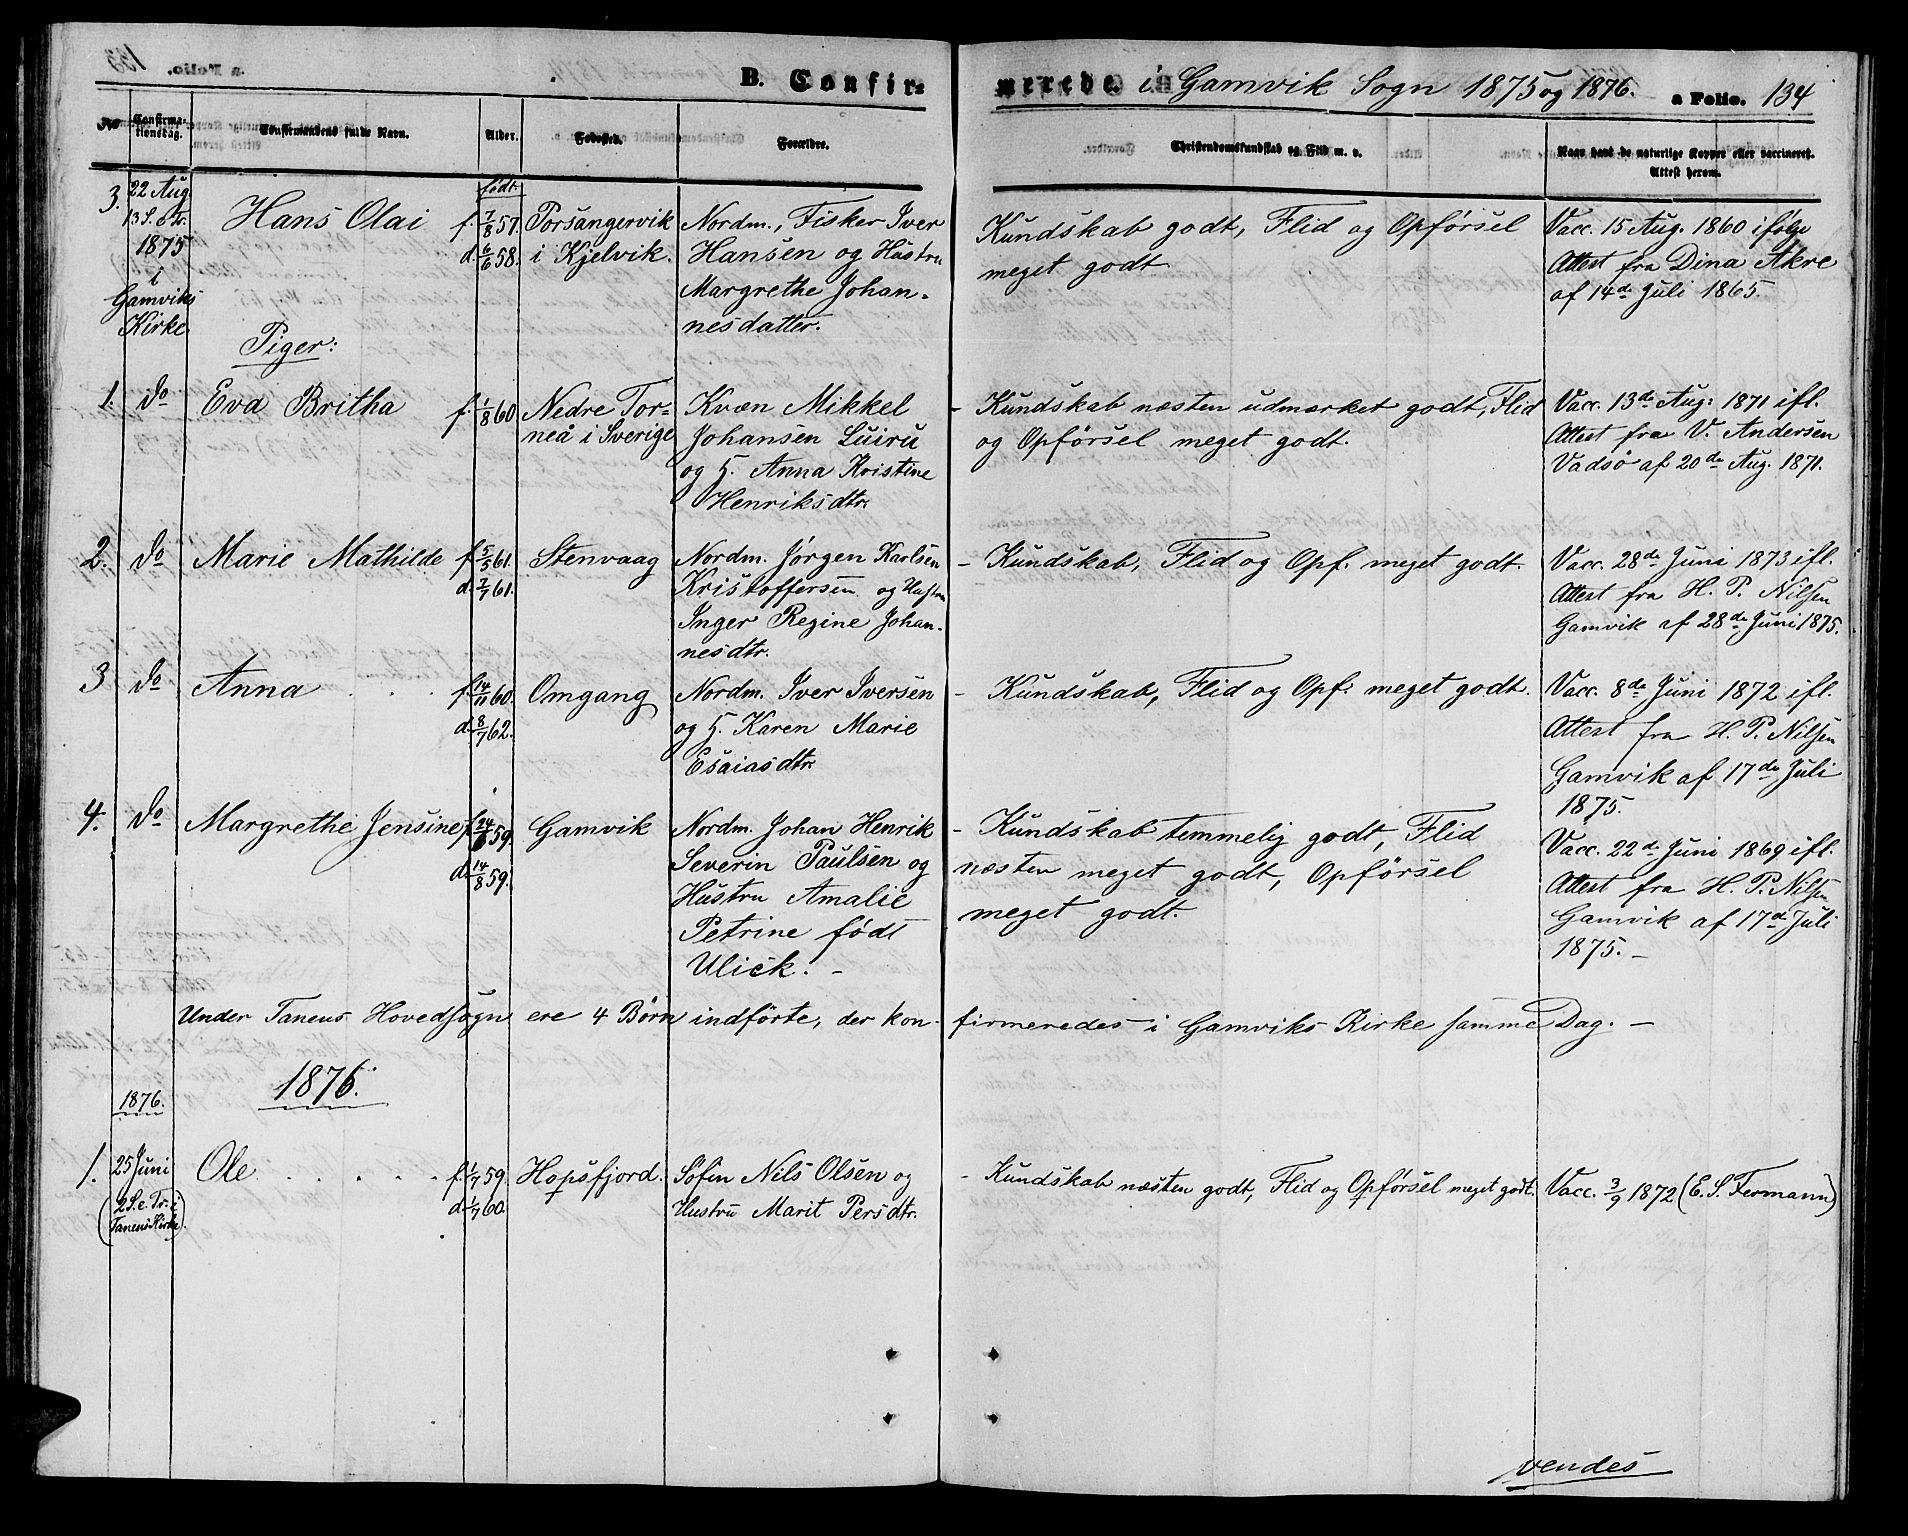 B. Confir= merede. i Gamvik Sogn 1875 og 1876. a Folio. 134
No Confirma-tionsdag. Confirmandens fulde Navn. Alder. Fødested. Forældre. Christendomskundskab og Flid m. v. Naar havt de naturlige Kopper eller vaccineret. Attest herom.
3.
22 Aug
13 S. e. Tr.
1875
i
Gamviks
Kirke
Hans Olai
født
f. 7/8 57.
d. 6/6 58.
Porsangervik
i Kjelvik.
Nordm., Fisker Iver
Hansen og Hustru
Margrethe Johan-
nesdatter.
Kundskab godt, Flid og Opførsel
meget godt.
Vacc. 15 Aug. 1860 ifølge
Attest fra Dina Akre
af 14de Juli 1865.
Piger:
1. do Eva Britha
f. 1/8 60
Nedre Tor=
neå i Sverige
Kvæn Mikkel
Johansen Luiru
og H. Anna Kristine
Henriksdtr.
- Kundskab næsten udmærket godt, Flid
og Opførsel meget godt.
Vacc. 13de Aug. 1871 ifl.
Attest fra V. Andersen
Vadsø af 20de Aug. 1871.
2. do Marie Mathilde
f. 5/5 61.
d. 7/7 61.
Stenvaag
Nordm. Jørgen Karlsen
Kristoffersen og Hustru
Inger Regine Johan-
nesdtr.
- Kundskab, Flid og Opf. meget godt.
Vacc. 28de Juni 1873 ifl.
Attest fra H. P. Nilsen
Gamvik af 28de Juni 1875.
3 do Anna
f. 14/11 60.
d. 8/7 62.
Omgang
Nordm. Iver Iversen
og H. Karen Marie
Esaiasdtr.
- Kundskab, Flid og Opf. meget godt.
Vacc. 8de Juni 1872 ifl.
Attest fra H. P. Nilsen
Gamvik af 17de Juli
1875.
4. do Margrethe Jensine
f. 24/6 59.
d. 14/8 59.
Gamvik
Nordm. Johan Henrik
Severin Paulsen og
Hustru Amalie
Petrine født
Ulick. -
- Kundskab temmelig godt, Flid
næsten meget godt, Opførsel
meget godt.
Vacc. 22de Juni 1869 ifl.
Attest fra H. P. Nilsen
Gamvik af 17de Juli
1875. -
Under Tanens Hovedsogn ere 4 Børn indførte, der kon- firmeredes i Gamviks Kirke samme Dag. -
1876.
1876.
1.
25 Juni
(2 S. e. Tr. i
Tanens Kirke).
Ole
f. 1/7 59.
d. 1/7 60.
Hopsfjord.
Søfin Nils Olsen og
Hustru Marit Persdtr.
- Kundskab næsten godt, Flid og Opførsel meget godt.
Vacc. 3/9 1872 (E. S. Fermann)
vendes